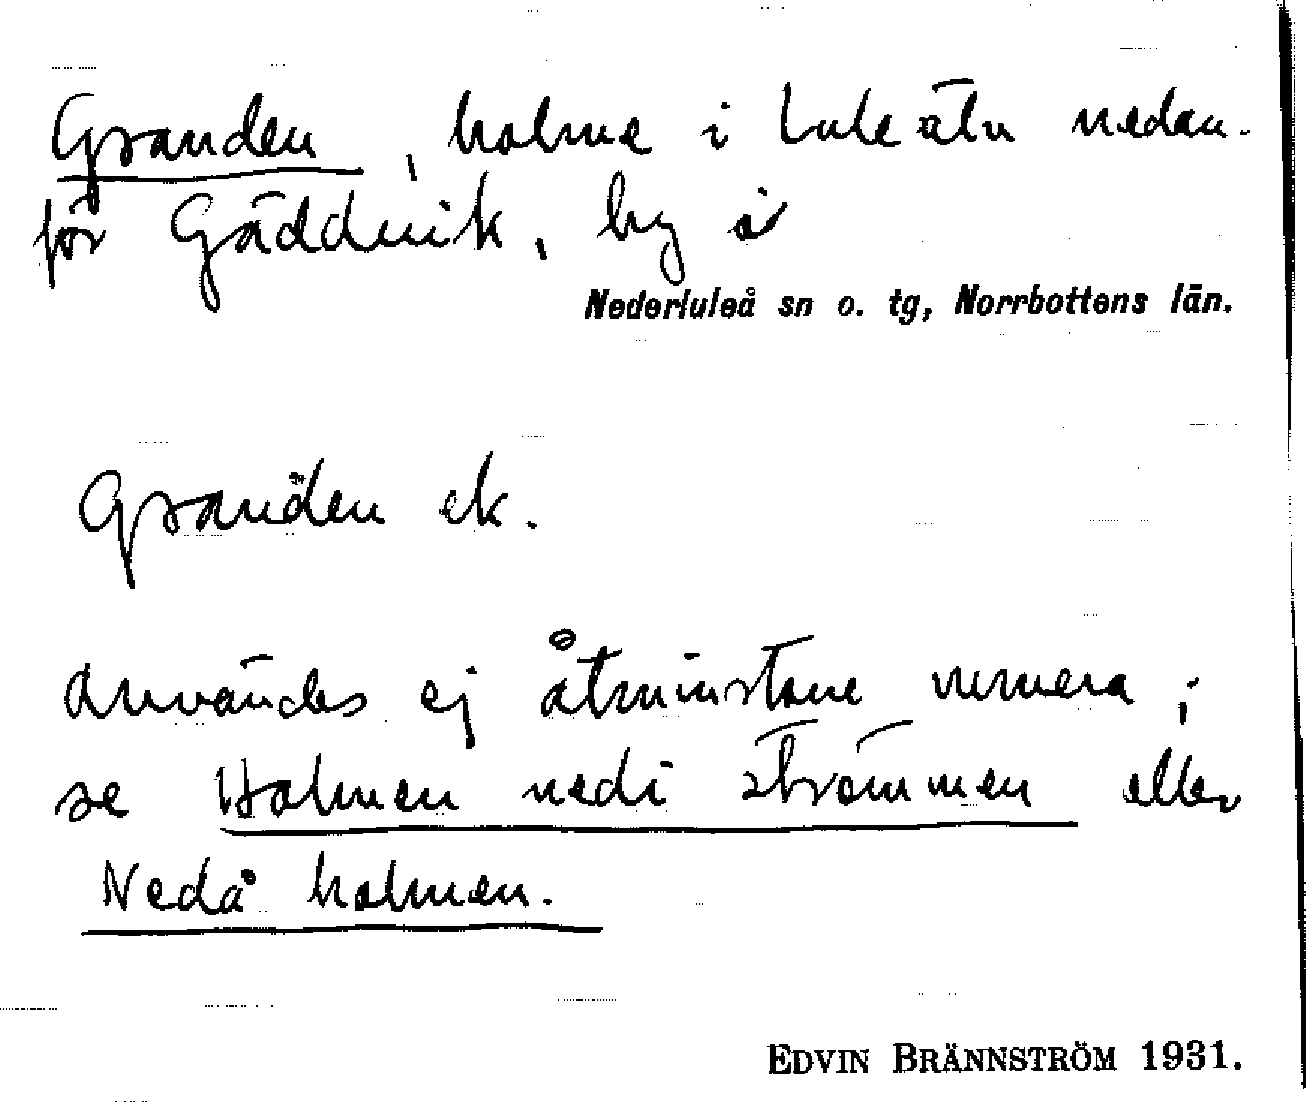 Granden, holme i Luleälv nedan-
för Gäddvik, by i
Nederluleå sn o. tg, Norrbottens län.
Granden ek.
Användes ej åtminstone numera;
se Holmen nedi strömmen eller
Nedå holmen.
EDVIN BRÄNNSTRÖM 1931.